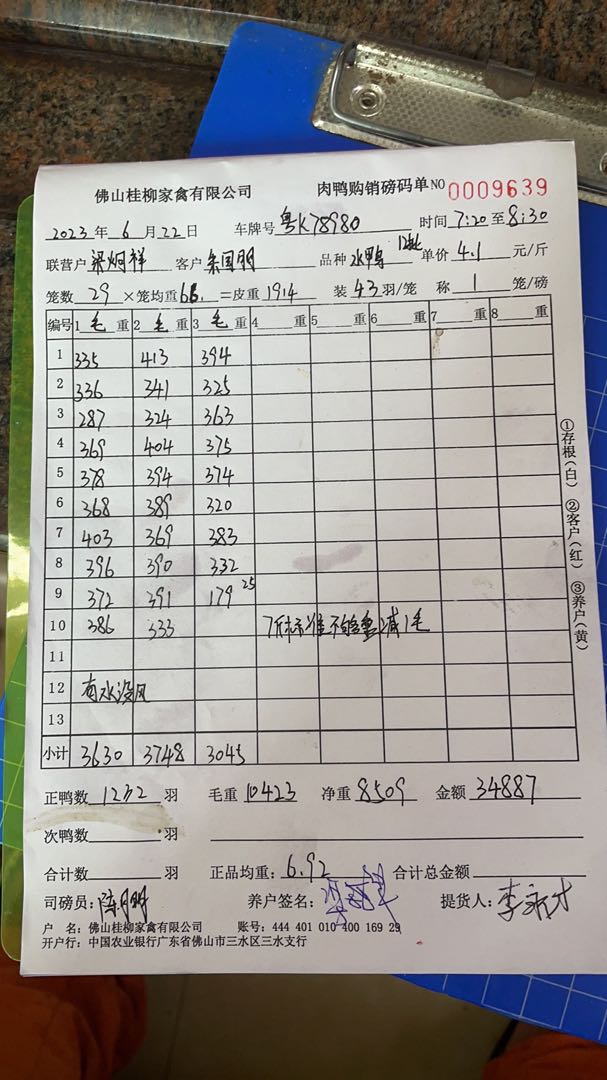 佛山桂柳家禽有限公司 肉鸭购销磅码单 NO 0009639
2023 年 6 月 22 日 车牌号 粤K78980 时间 7:20 至 8:30
联营户 梁炯祥 客户 朱国明 品种 水鸭 单价 4.1 元/斤
笼数 29 ×笼均重 66. =皮重 1914 装 43 羽/笼 称 1 笼/磅
编号 1 毛 重 2 毛 重 3 毛 重 4 重 5 重 6 重 7 重 8 重
1 335 413 394
2 336 341 325
3 287 324 363
4 369 404 375
5 378 394 374
6 368 389 320
7 403 369 383
8 396 390 332
9 372 391 179 25
10 386 333 7斤标准不够重减1毛
11
12 有水没风
13
小计 3630 3748 3045
①存根(白) ②客户(红) ③养户(黄)
正鸭数 1232 羽 毛重 10423 净重 8509 金额 34887
次鸭数 羽
合计数 羽 正品均重: 6.92 合计总金额
司磅员: 养户签名: 提货人: 李
户 名: 佛山桂柳家禽有限公司 账号: 444 401 010 400 169 29
开户行: 中国农业银行广东省佛山市三水区三水支行